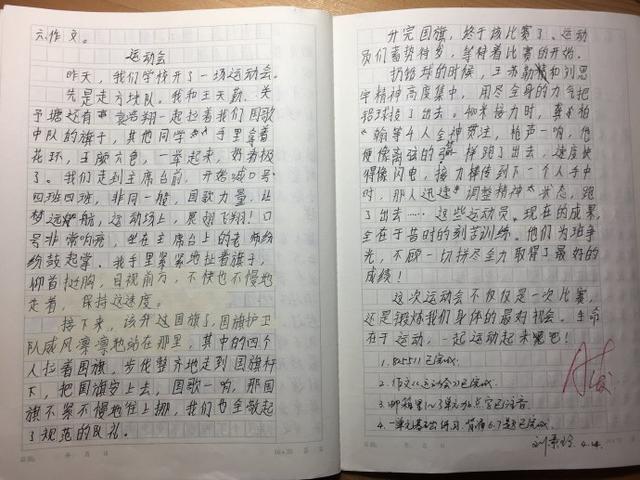 六、作文。
运动会
昨天，我们学校开了一场运动会。
先是走方块队。我和王天勤、关
予塘还有 翔一起拉着我们国歌
中队的旗子，其他同学 手里拿着
花环，五颜六色，一举起来，好看极
了。我们走到主席台前，开始喊口号：
四班四班，非同一般，国歌力量，让
梦远航，运动场上，展翅飞翔！口
号非常响亮，坐在主席台上的老师纷
纷鼓起掌。我手里紧紧地扯着旗子，
仰首挺胸，目视前方，不快也不慢地
走着，保持这速度。
接下来，该升过国旗了，国旗护卫
队威风凛凛地站在那里，其中的四个
人拉着国旗，步伐整齐地走到国旗杆
下，把国旗穿上去，国歌一响，那国
旗不紧不慢地往上挪，我们也至敬起
了规范的队礼。
升完国旗，终于该比赛了。运动
员们蓄势待发，等待着比赛的开始。
扔铅球的时候，王苏 和刘思
宇精神高度集中，用尽全身的力气把
铅球投了出去。 米接力时， 柏
翰等4人全神贯注，枪声一响，他
便像离弦的箭一样跑了出去，速度快
得像闪电，接力棒传到下一个人手中
时，那人迅速调整精神状态，跑
了出去……这些运动员。现在的成果，
全在于昔时的刻苦训练。他们为班争
光，不顾一切拼尽全力取得了最好的
成绩！
这次运动会不仅仅是一次比赛，
还是锻炼我们身体的最好机会。生命
在于运动，一起运动起来吧！
1. 已完成.
2.作文《运动会》已完成.
3. 单元 已注音.
4.一单元基础练习，背诵6.7 已完成.
4.14.